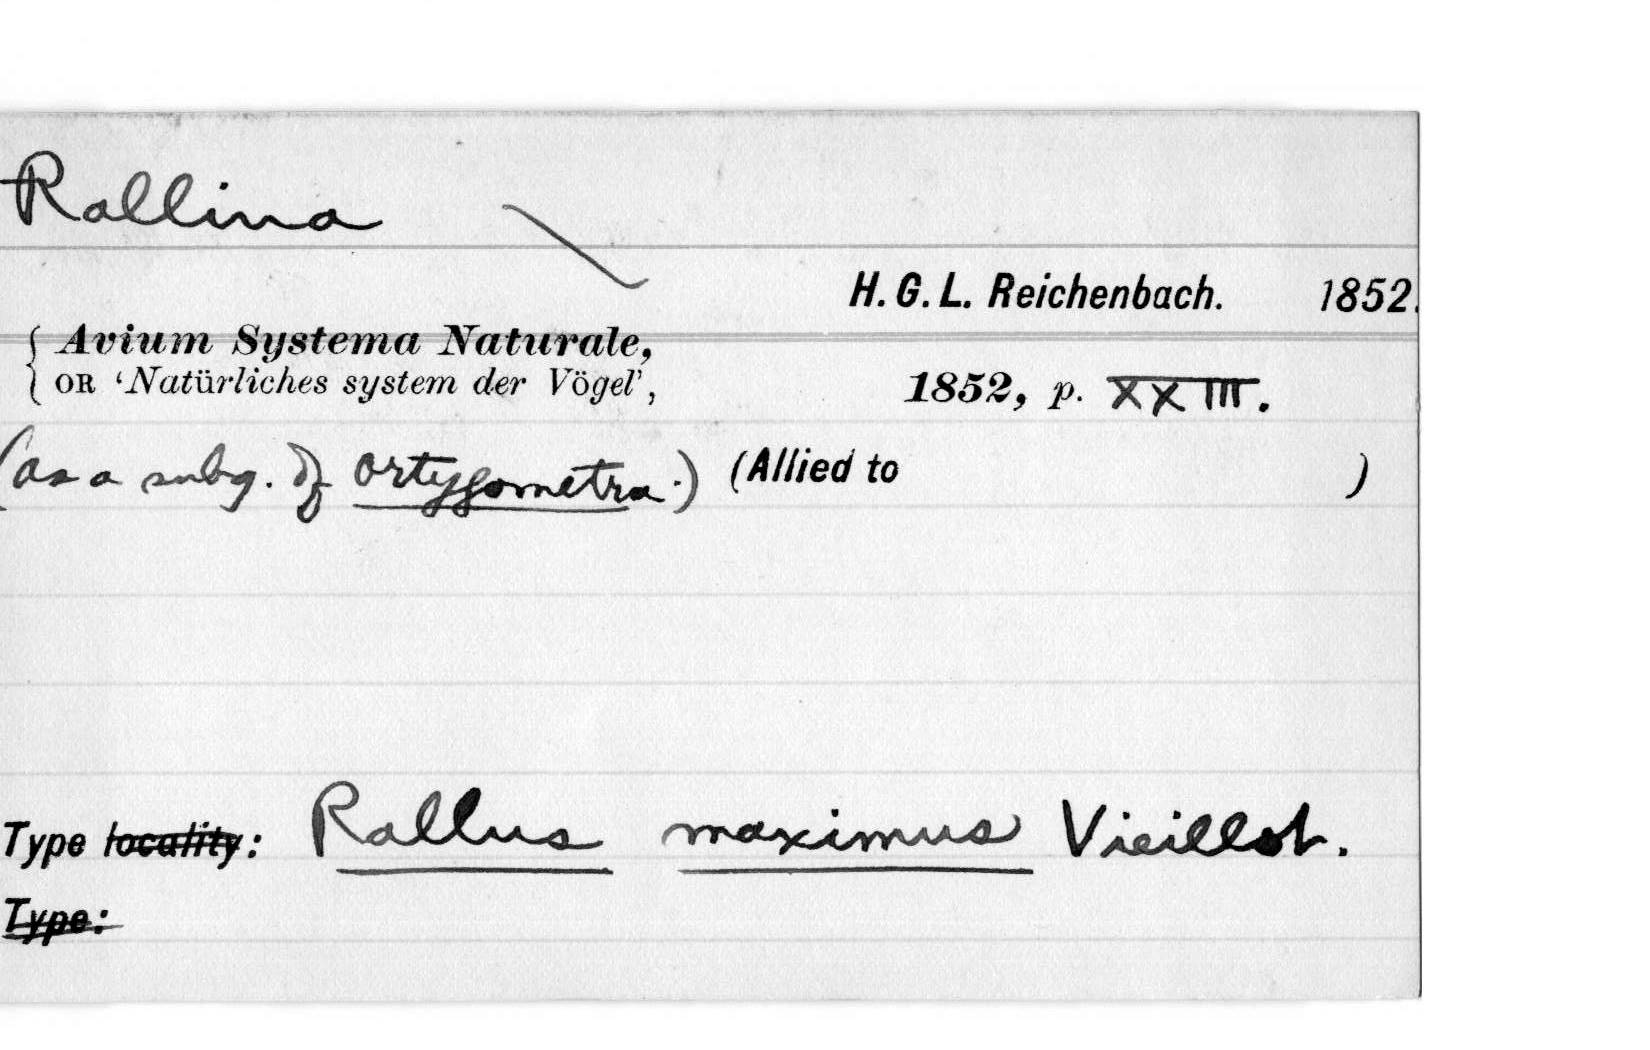 Rallina
H. G. L. Reichenbach. 1852.
{ Avium Systema Naturale,
{ OR ‘Natürliches system der Vögel’, 1852, p. XXIII.
(as a subg. of Ortygometra.) (Allied to )
Type locality: Rallus maximus Vieillot.
Type: